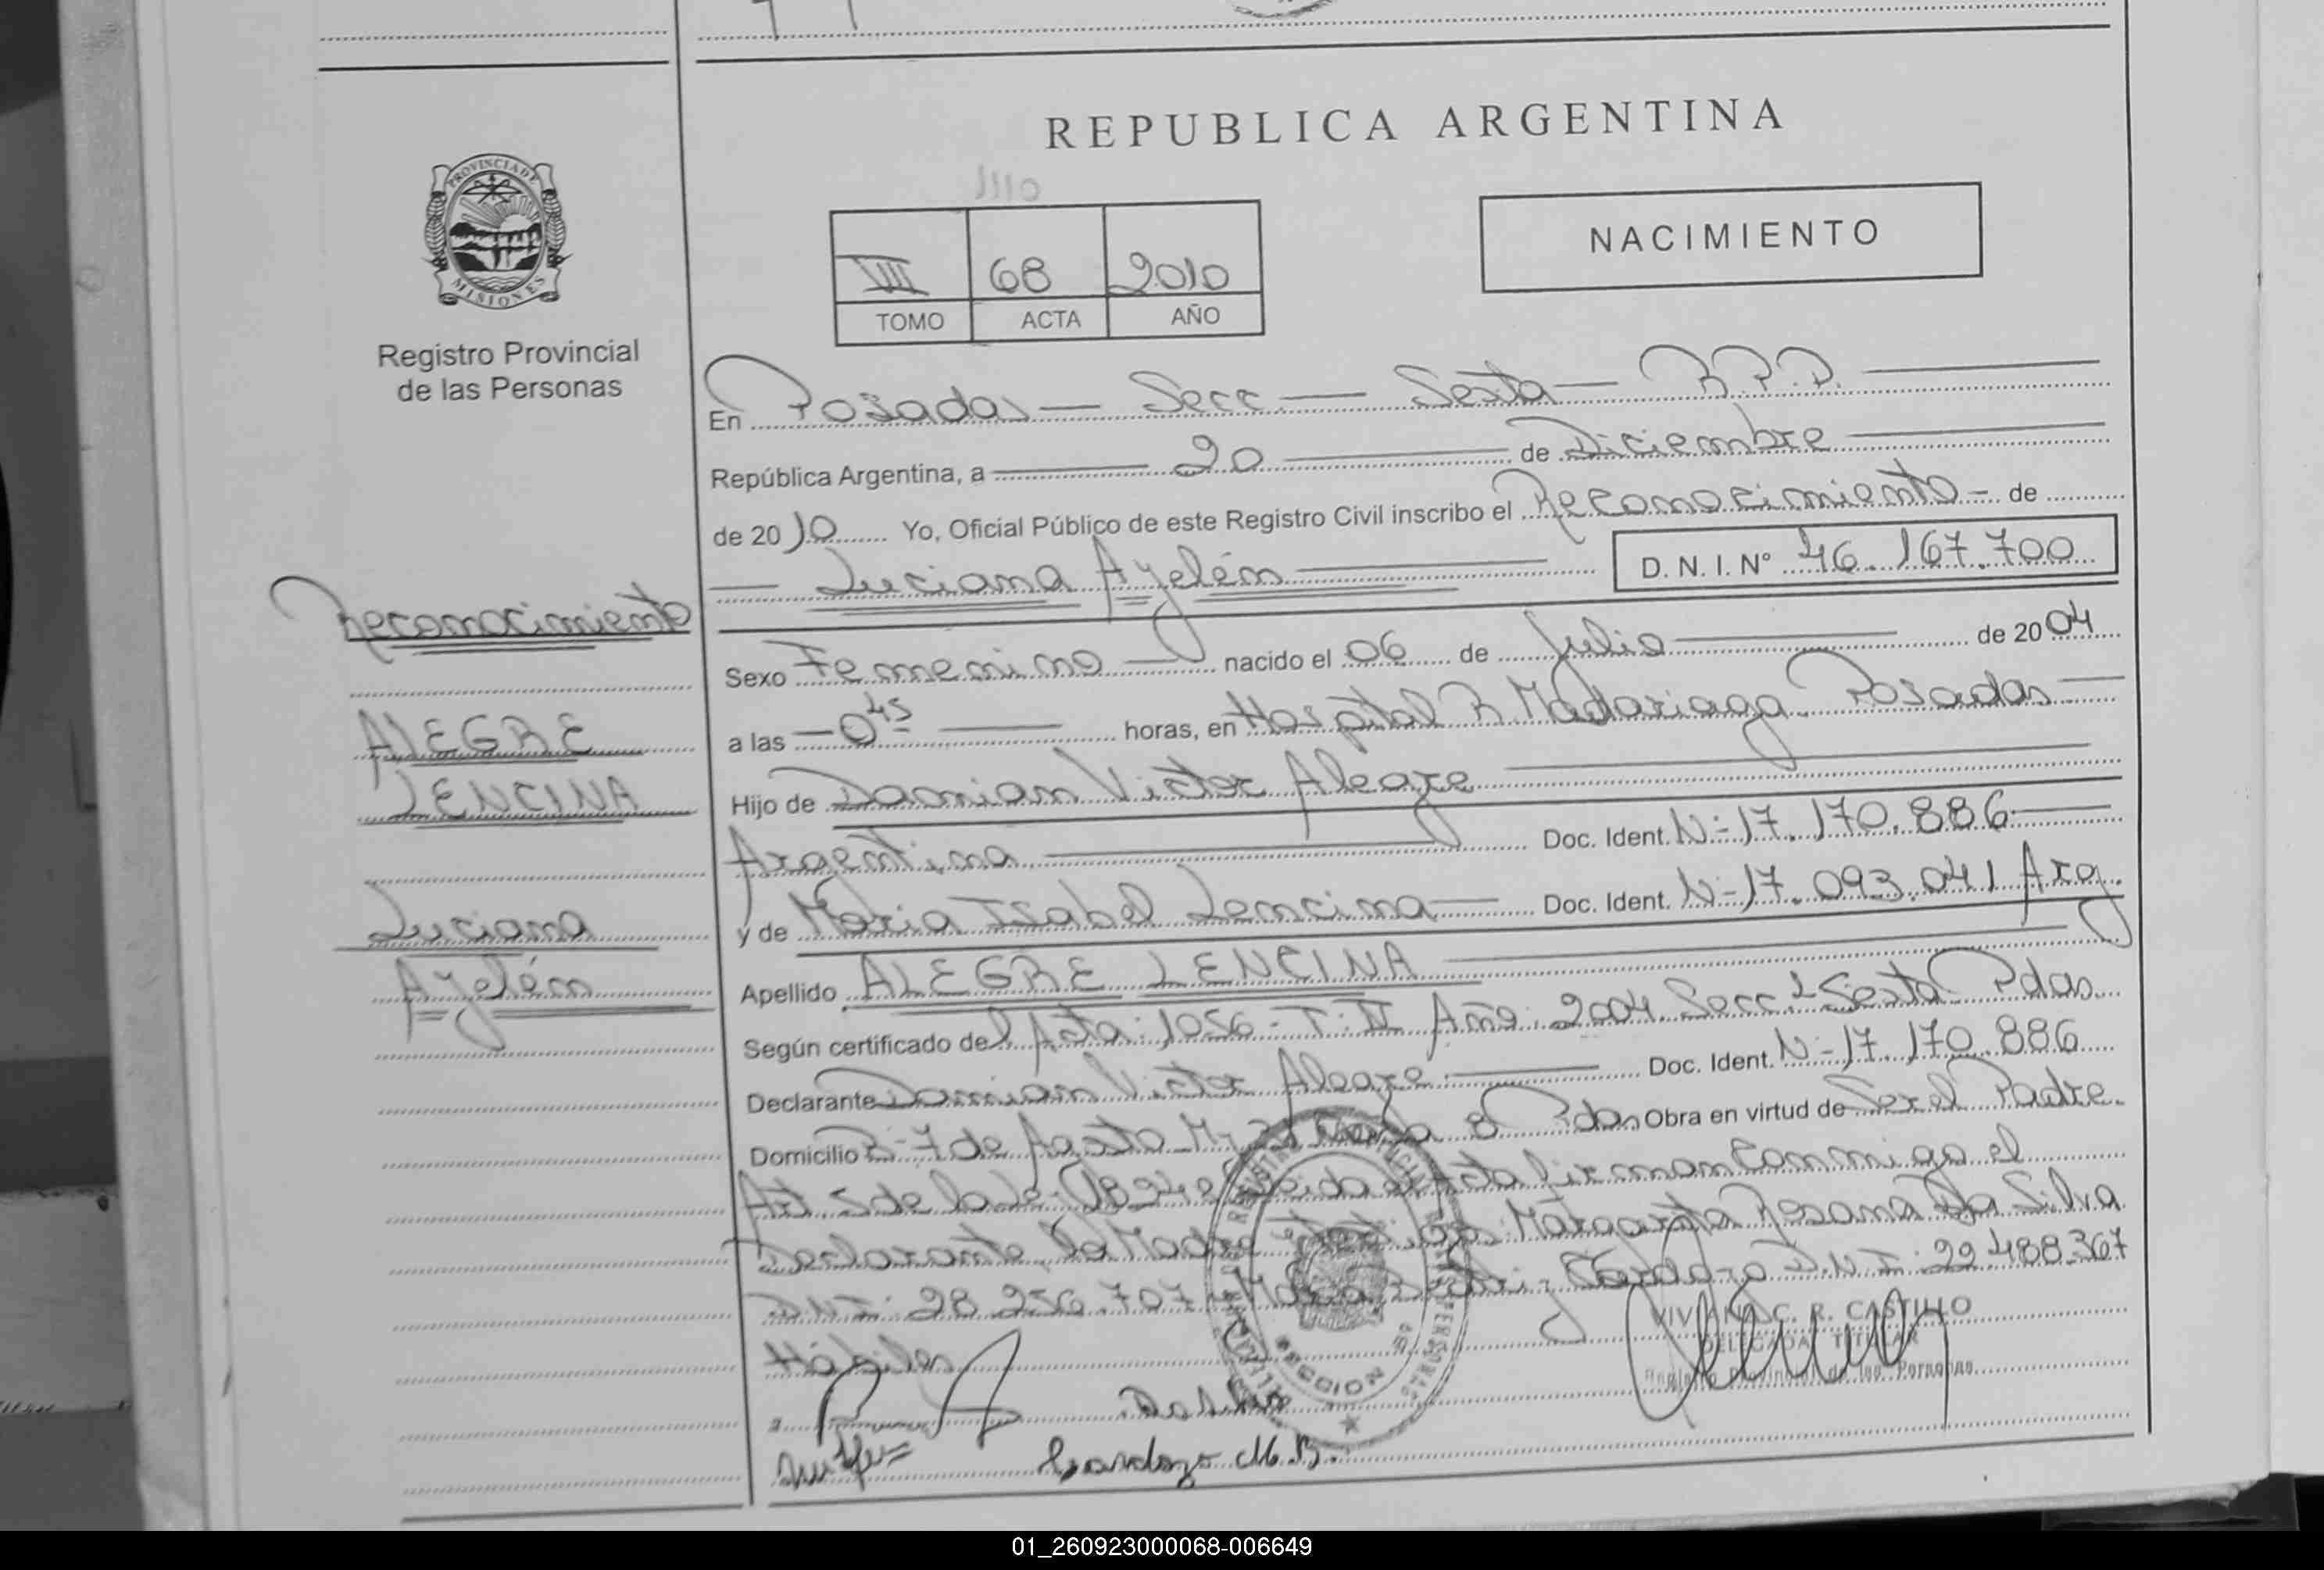 REPUBLICA ARGENTINA
PROVINCIA DE
MISIONES
Registro Provincial
de las Personas
VIII 68 2010
TOMO ACTA AÑO
NACIMIENTO
En Posadas — Secc. — Sexta — R.P.P.
República Argentina, a 20 de Diciembre
de 2010 Yo, Oficial Público de este Registro Civil inscribo el Reconocimiento de
Luciana Ayelén D. N. I. N° 46.167.700
Reconocimiento
ALEGRE
LENCINA
Luciana
Ayelén
Sexo Femenino nacido el 06 de Julio de 2004
a las 0 45 horas, en Hospital R. Madariaga Posadas
Hijo de Damian Victor Alegre
Argentina Doc. Ident. N-17.170.886
y de Maria Isabel Lencina Doc. Ident. N-17.093.041 Arg.
Apellido ALEGRE LENCINA
Según certificado del Acta: 1020 - T: II Año: 2004. Secc. Sexta Pdas
Declarante Damian Victor Alegre Doc. Ident. N-17.170.886
Domicilio Pdas Obra en virtud de Ser el Padre.
firman conmigo el
Declarante, la Madre Margarita Rosana Da Silva
D.N.I: 22.488.367
VIVIANA C. R. CASTILLO
DELEGADA TITULAR
Registro Provincial de las Personas
SECCION
Cardozo M.B.
01_260923000068-006649